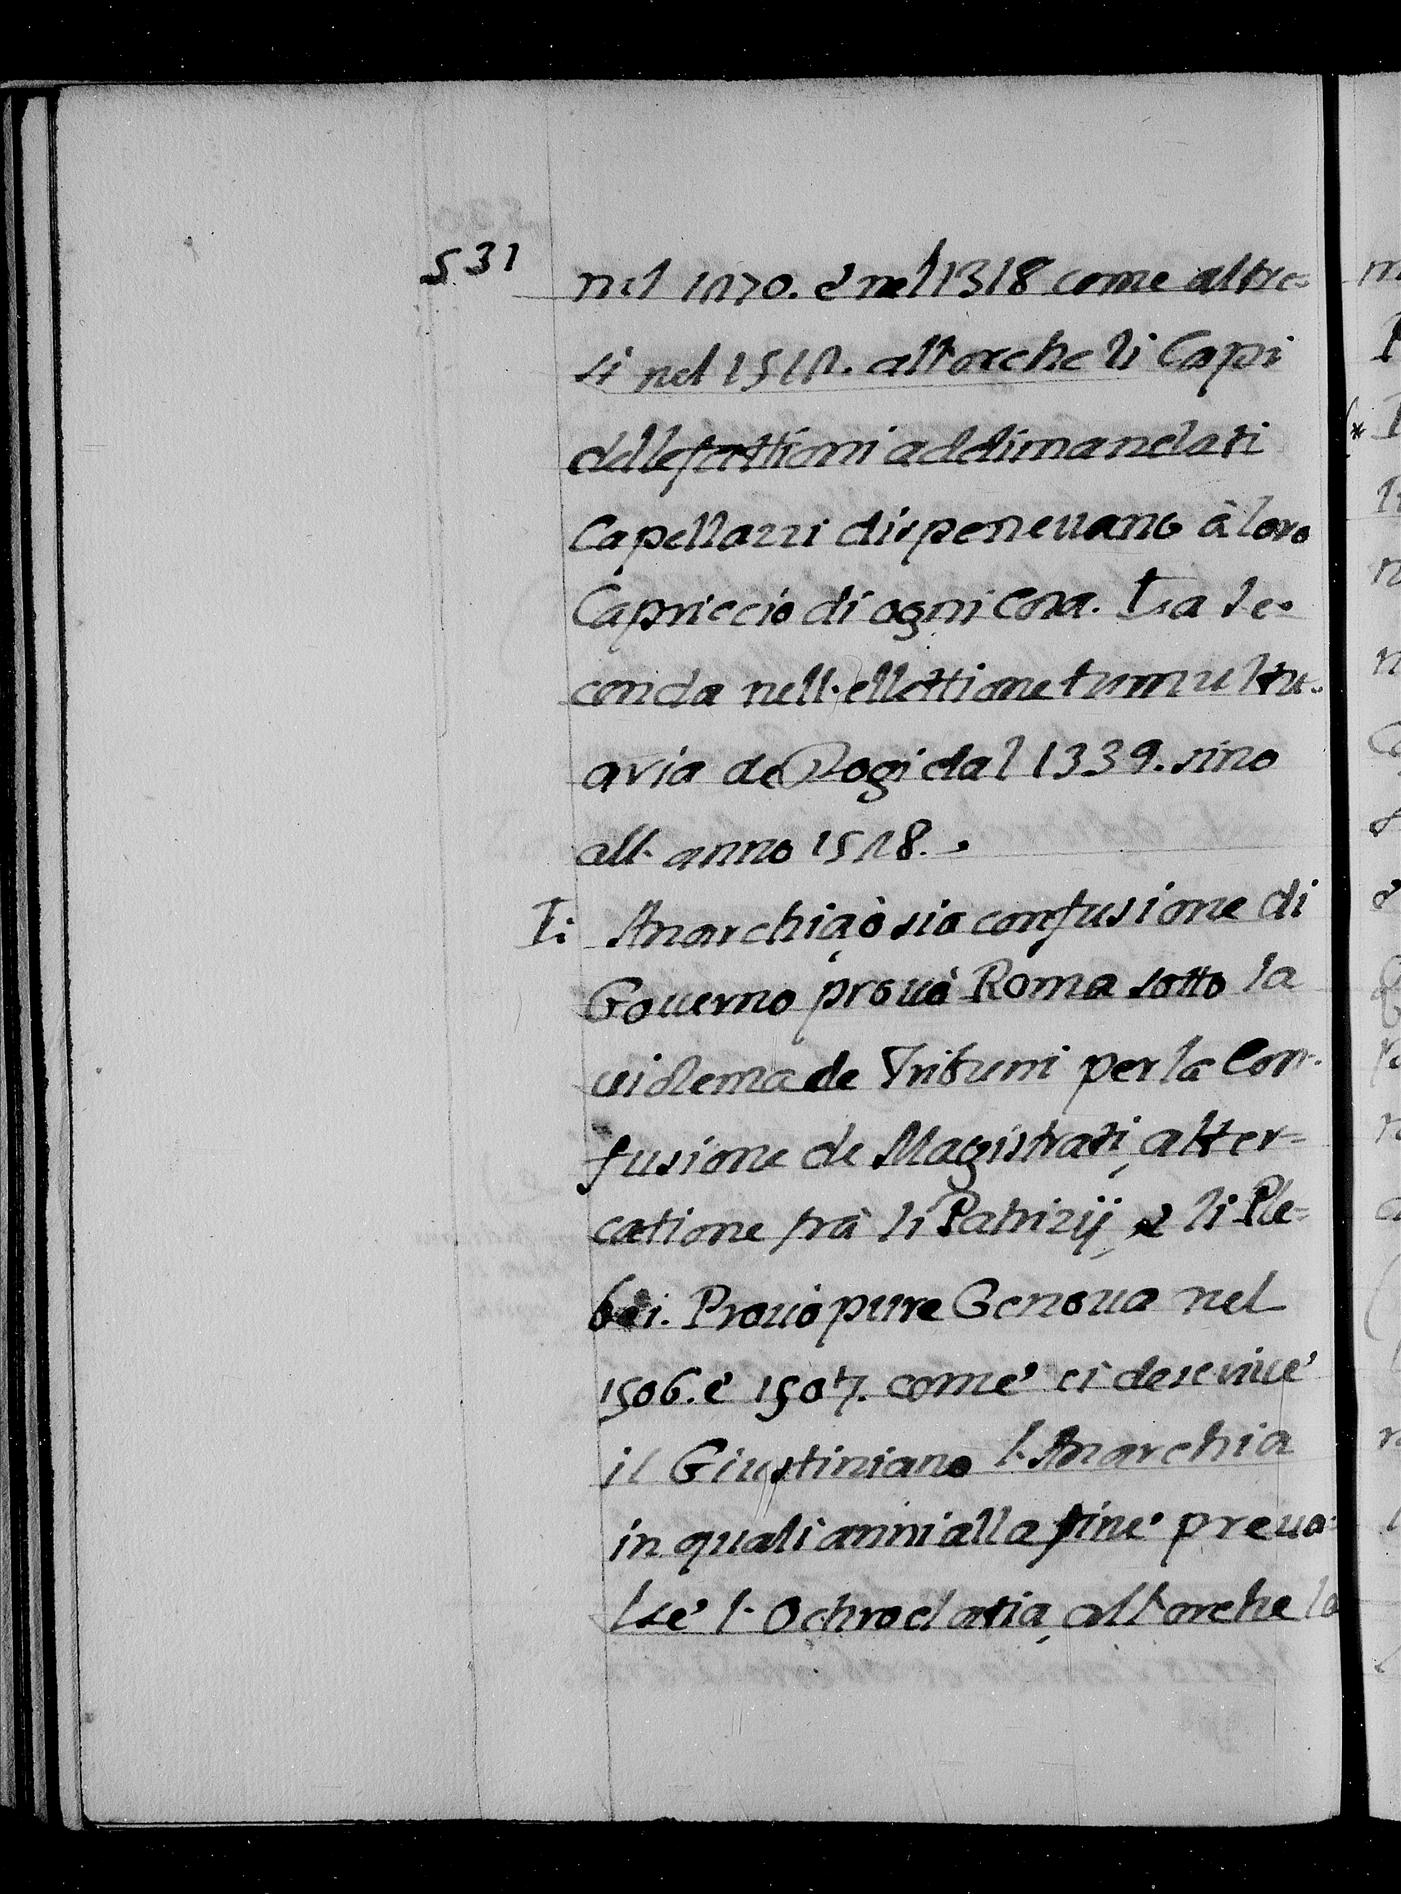 531
nel 1270. è nel 1318 come altre=
si nel 1512. all'orche li Capi
delle fattioni addimandati
Capellazzi disponeuano à loro
Capriccio di ogni cosa. La se=
conda nell'ellettione tumultu=
aria de Dogi dal 1339. sino
all' anno 1528.
I: Anarchia ò sia confusione di
Gouerno prouò Roma sotto la
uiolema de Tribuni per la Con=
fusione de Magistrati, alter=
catione frà li Patrizij, e li Ple=
bei. Prouò pure Genoua nel
1506. è 1507. comè ci descriue
il Giustiniano l'Anarchia
in quali anni alla fine preua=
lsè l'Ochroclatia, all'orche la